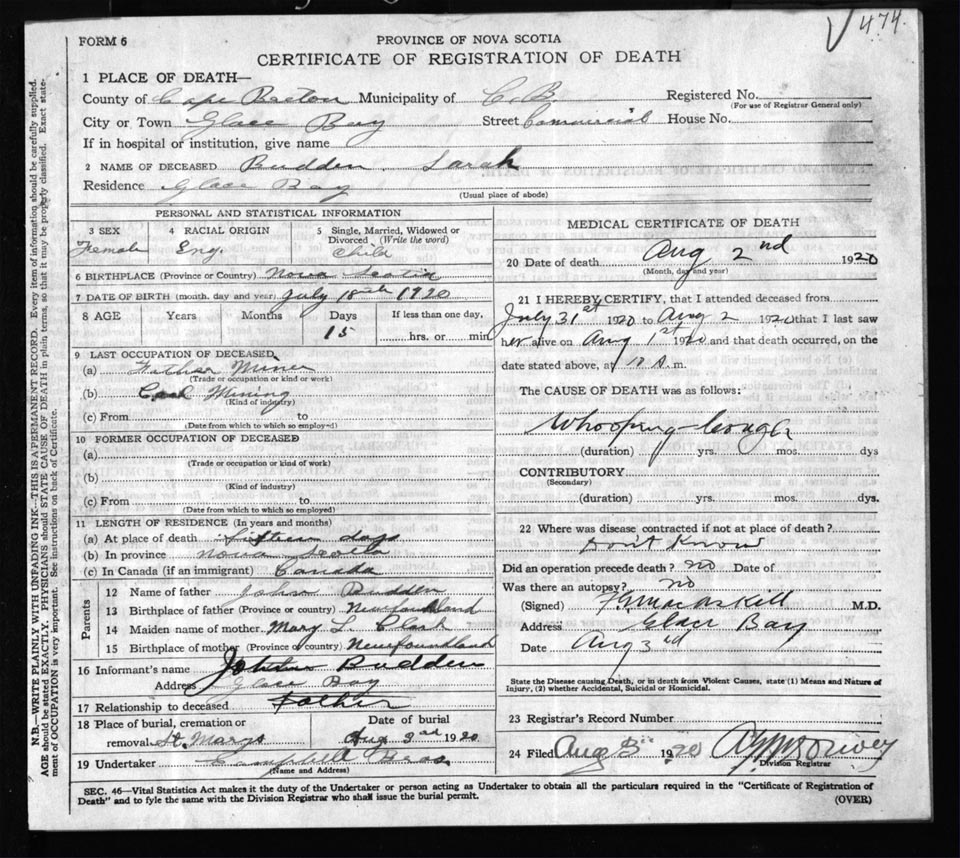 474.
FORM 6
PROVINCE OF NOVA SCOTIA
CERTIFICATE OF REGISTRATION OF DEATH
1 PLACE OF DEATH—
County of Cape Breton Municipality of C. B. Registered No.
(For use of Registrar General only)
City or Town Glace Bay Street Commercial House No.
If in hospital or institution, give name
2 NAME OF DECEASED Budden Sarah
Residence Glace Bay
(Usual place of abode)
PERSONAL AND STATISTICAL INFORMATION
3 SEX 4 RACIAL ORIGIN 5 Single, Married, Widowed or Divorced (Write the word)
Female Eng. Child
6 BIRTHPLACE (Province or Country) Nova Scotia
7 DATE OF BIRTH (month, day and year) July 18th 1920
8 AGE Years Months Days If less than one day,
15 hrs. or min
9 LAST OCCUPATION OF DECEASED
(a) Father Miner
(Trade or occupation or kind or work)
(b) Coal Mining
(Kind of industry)
(c) From to
(Date from which to which so employed)
10 FORMER OCCUPATION OF DECEASED
(a)
(Trade or occupation or kind of work)
(b)
(Kind of industry)
(c) From to
(Date from which to which so employed)
11 LENGTH OF RESIDENCE (In years and months)
(a) At place of death fifteen days
(b) In province Nova Scotia
(c) In Canada (if an immigrant) Canada
Parents
12 Name of father John Budden
13 Birthplace of father (Province or country) Newfoundland
14 Maiden name of mother Mary L Clark
15 Birthplace of mother (Province or country) Newfoundland
16 Informant's name John Budden
Address Glace Bay
17 Relationship to deceased Father
18 Place of burial, cremation or removal St. Marys
Date of burial Aug 3rd 1920
19 Undertaker Campbell Bros.
(Name and Address)
MEDICAL CERTIFICATE OF DEATH
20 Date of death Aug 2nd 1920
(Month, day and year)
21 I HEREBY CERTIFY, that I attended deceased from
July 31st 1920 to Aug 2 1920 that I last saw
her alive on Aug 1st 1920 and that death occurred, on
date stated above, at A. m.
The CAUSE OF DEATH was as follows:
Whooping-Cough
(duration) yrs. mos. dys
CONTRIBUTORY
(Secondary)
(duration) yrs. mos. dys.
22 Where was disease contracted if not at place of death?
Don't Know
Did an operation precede death? no Date of
Was there an autopsy? no
(Signed) MacAskill M.D.
Address Glace Bay
Date Aug 3rd
State the Disease causing Death, or in death from Violent Causes, state (1) Means and Nature of
Injury, (2) whether Accidental, Suicidal or Homicidal.
23 Registrar's Record Number
24 Filed Aug 1920
Division Registrar
SEC. 46—Vital Statistics Act makes it the duty of the Undertaker or person acting as Undertaker to obtain all the particulars required in the "Certificate of Registration of
Death" and to fyle the same with the Division Registrar who shall issue the burial permit.
(OVER)
N.B.—WRITE PLAINLY WITH UNFADING INK—THIS IS A PERMANENT RECORD. Every item of information should be carefully supplied.
AGE should be stated EXACTLY. PHYSICIANS should STATE CAUSE OF DEATH in plain terms, so that it may be properly classified. Exact state-
ment of OCCUPATION is very important. See instructions on back of Certificate.